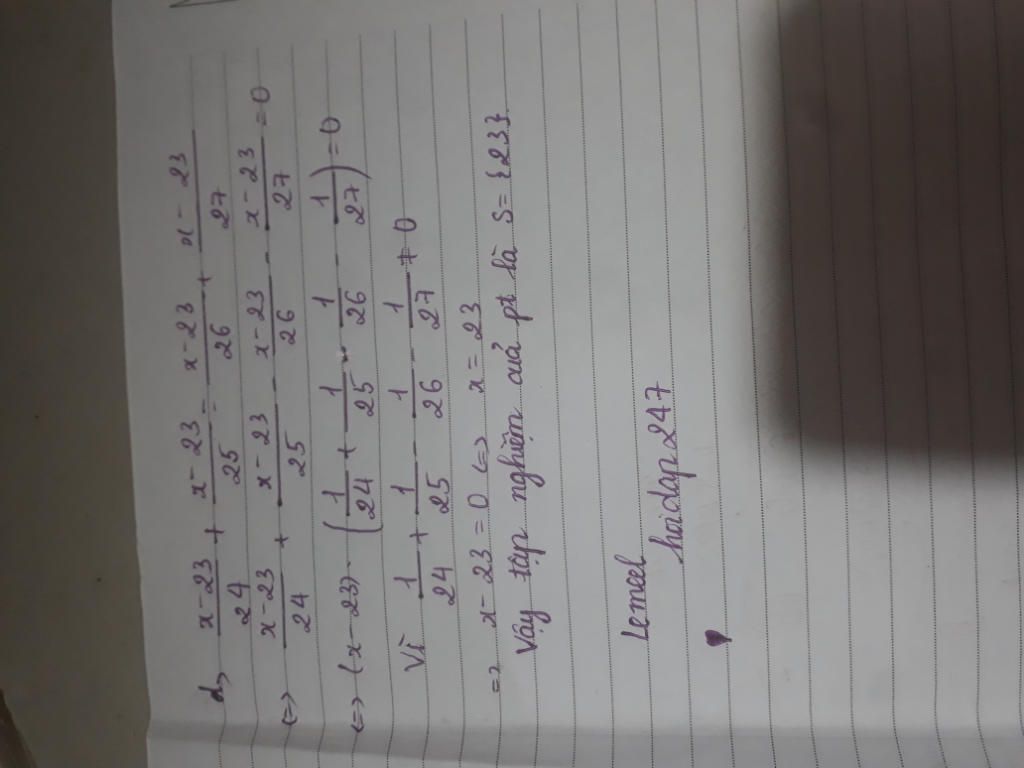 d, \frac{x-23}{24} + \frac{x-23}{25} = \frac{x-23}{26} + \frac{x-23}{27}
<=> \frac{x-23}{24} + \frac{x-23}{25} - \frac{x-23}{26} - \frac{x-23}{27} = 0
<=> (x-23) . (\frac{1}{24} + \frac{1}{25} - \frac{1}{26} - \frac{1}{27}) = 0
Vì \frac{1}{24} + \frac{1}{25} - \frac{1}{26} - \frac{1}{27} ≠ 0
=> x-23 = 0 <=> x = 23
Vậy tập nghiệm cuả pt là S = {23}.
Lemeel
hoidap247